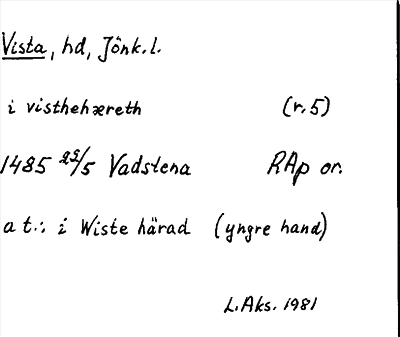 Vista, hd, Jönk.l.
i visthehæreth (r.5)
1485 29/5 Vadstena RAp or.
a t.: i Wiste härad (yngre hand)
L.Aks. 1981